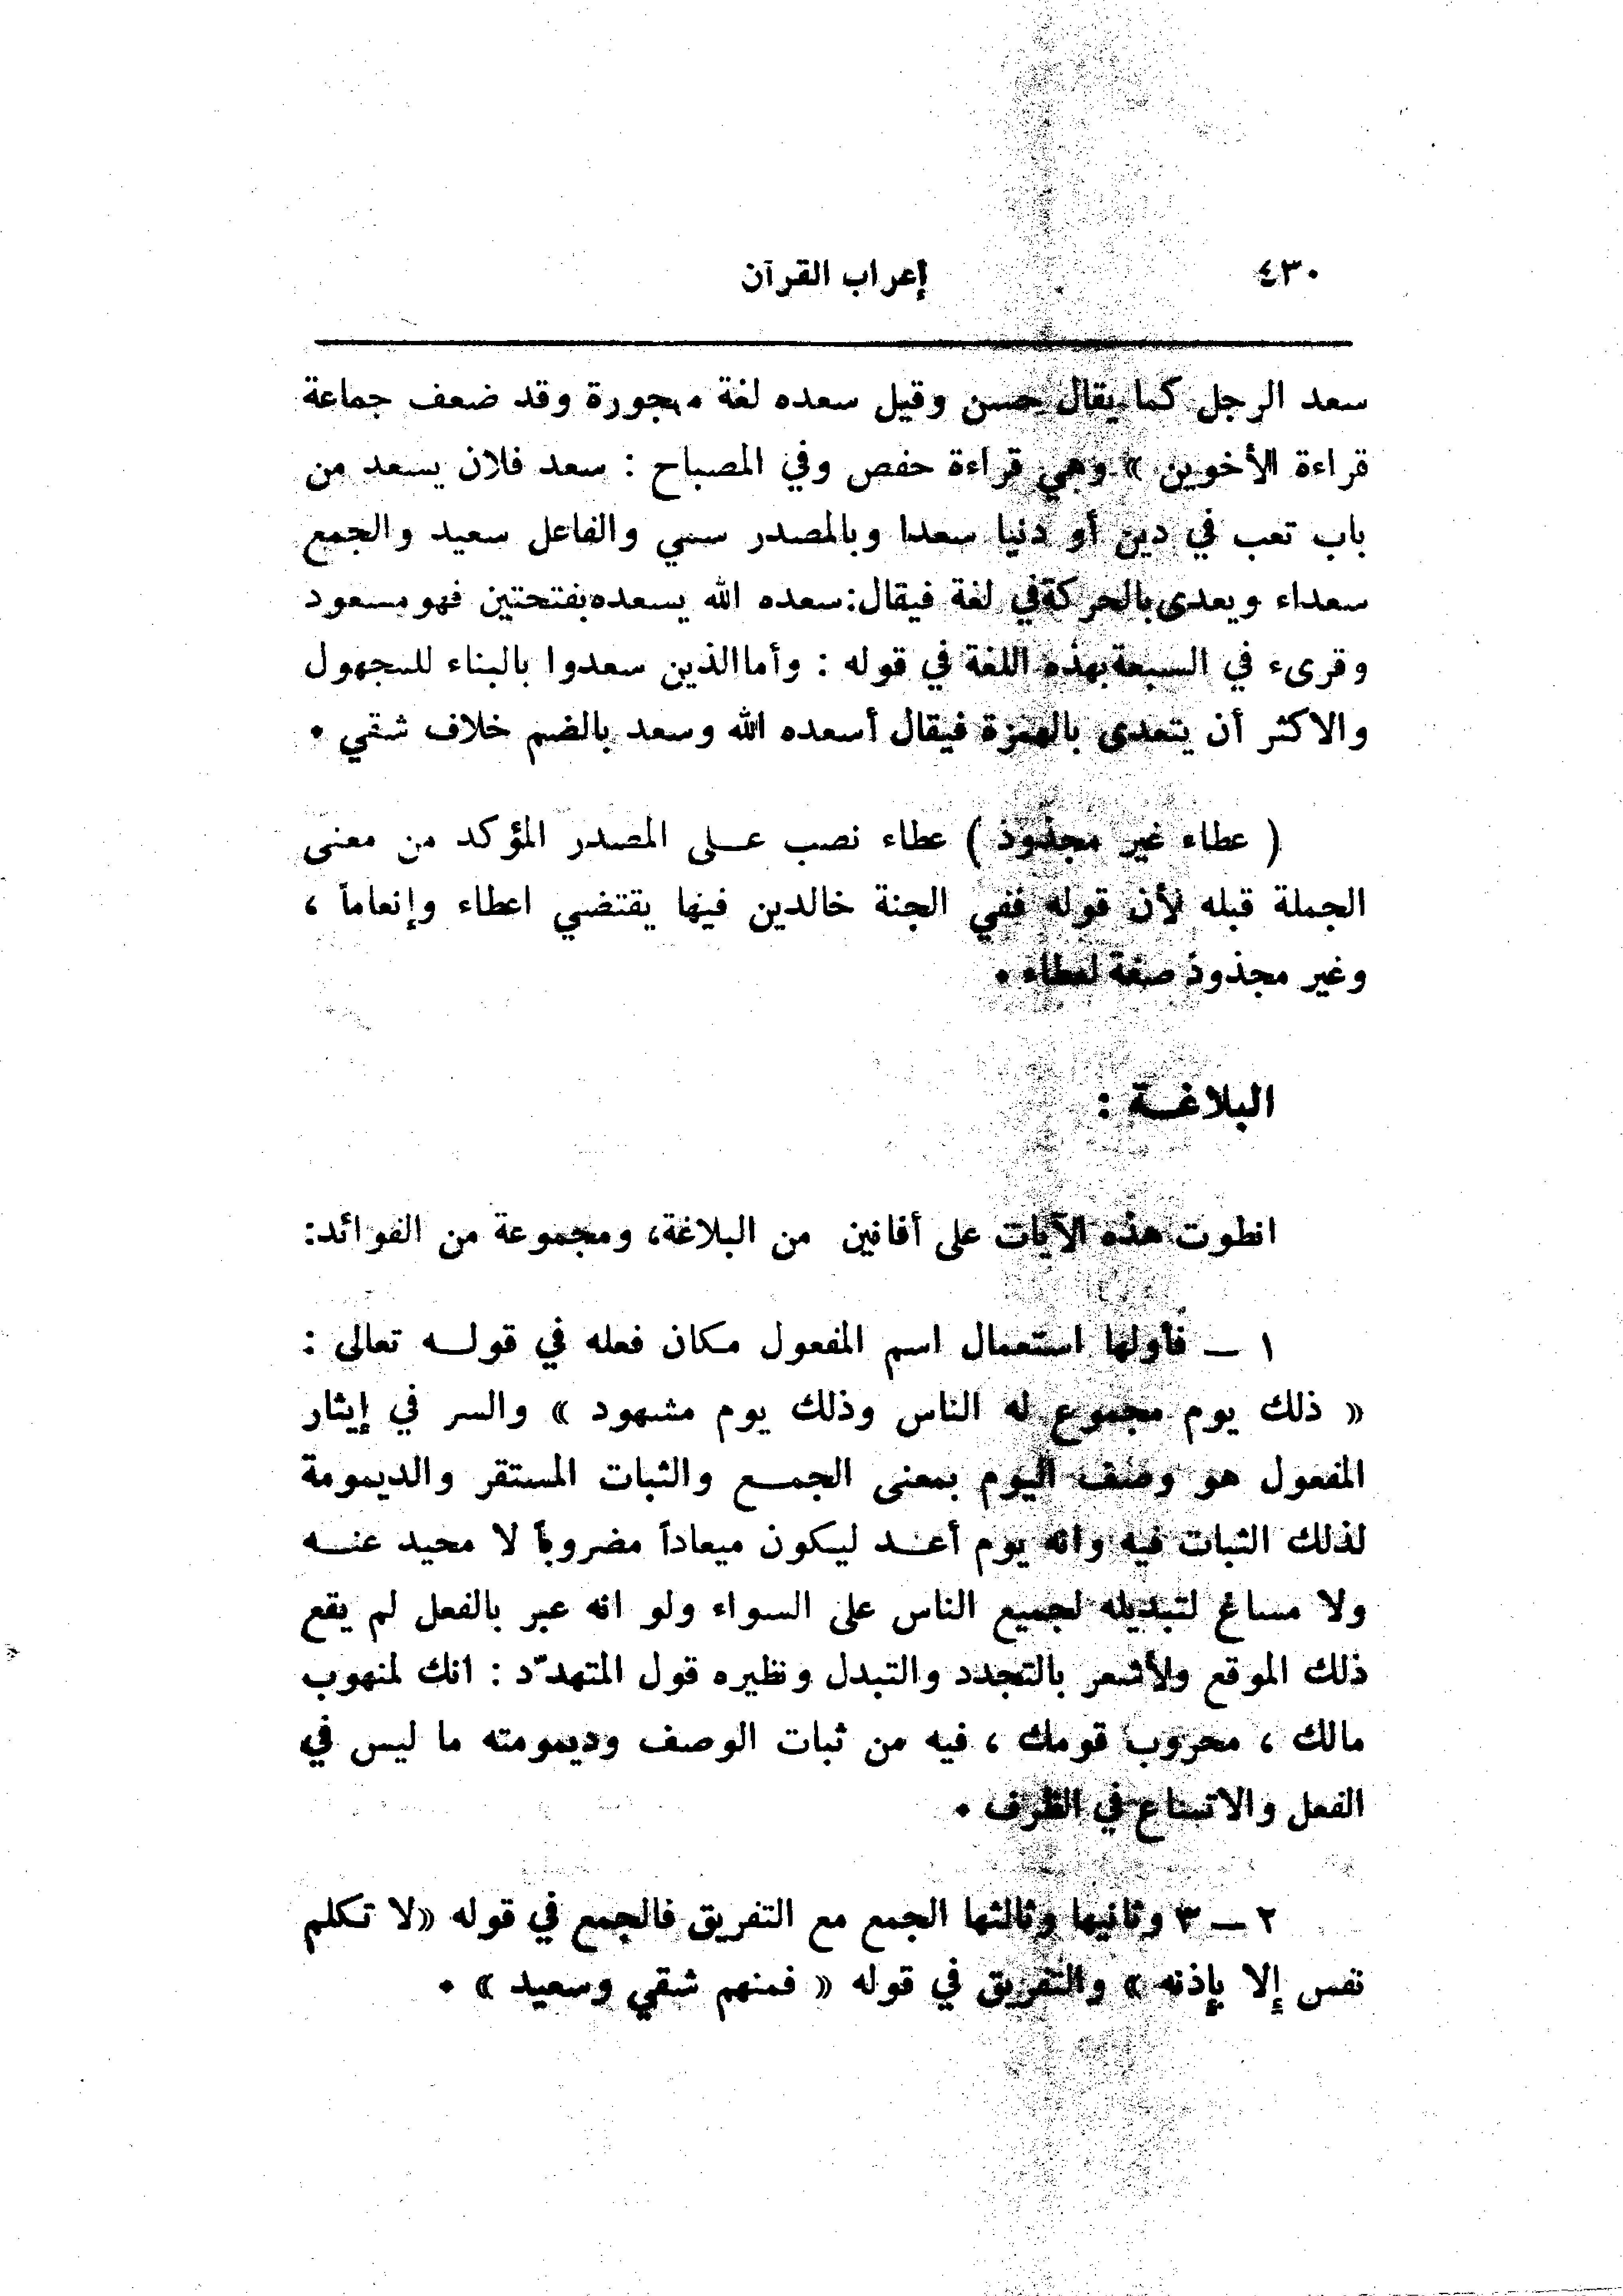 ٤٣٠ إعراب القرآن
سعد الرجل كما يقال حسن وقيل سعده لغة مهجورة وقد ضعف جماعة
قراءة الأخوين » وهي قراءة حفص وفي المصباح : سعد فلان يسعد من
باب تعب في دين أو دنيا سعدا وبالمصدر سمي والفاعل سعيد والجمع
سعداء ويعدى بالحركة في لغة فيقال: سعده الله يسعده بفتحتين فهو مسعود
وقرىء في السبعة بهذه اللغة في قوله : وأما الذين سعدوا بالبناء للمجهول
والاكثر أن يتعدى بالهمزة فيقال أسعده الله وسعد بالضم خلاف شقي .
( عطاء غير مجذوذ ) عطاء نصب على المصدر المؤكد من معنى
الجملة قبله لأن قوله ففي الجنة خالدين فيها يقتضي اعطاء وإنعاماً ،
وغير مجذوذ صفة لعطاء .
البلاغة :
انطوت هذه الآيات على أفانين من البلاغة، ومجموعة من الفوائد:
١ – فأولها استعمال اسم المفعول مكان فعله في قوله تعالى :
« ذلك يوم مجموع له الناس وذلك يوم مشهود » والسر في إيثار
المفعول هو وصف اليوم بمعنى الجمع والثبات المستقر والديمومة
لذلك الثبات فيه وانه يوم أعد ليكون ميعاداً مضروباً لا محيد عنه
ولا مساغ لتبديله لجميع الناس على السواء ولو انه عبر بالفعل لم يقع
ذلك الموقع ولأشعر بالتجدد والتبدل ونظيره قول المتهدّد : انك لمنهوب
مالك ، محروب قومك ، فيه من ثبات الوصف وديمومته ما ليس في
الفعل والاتساع في الظرف .
٢ – ٣ وثانيها وثالثها الجمع مع التفريق فالجمع في قوله «لا تكلم
نفس إلا بإذنه » والتفريق في قوله « فمنهم شقي وسعيد » .